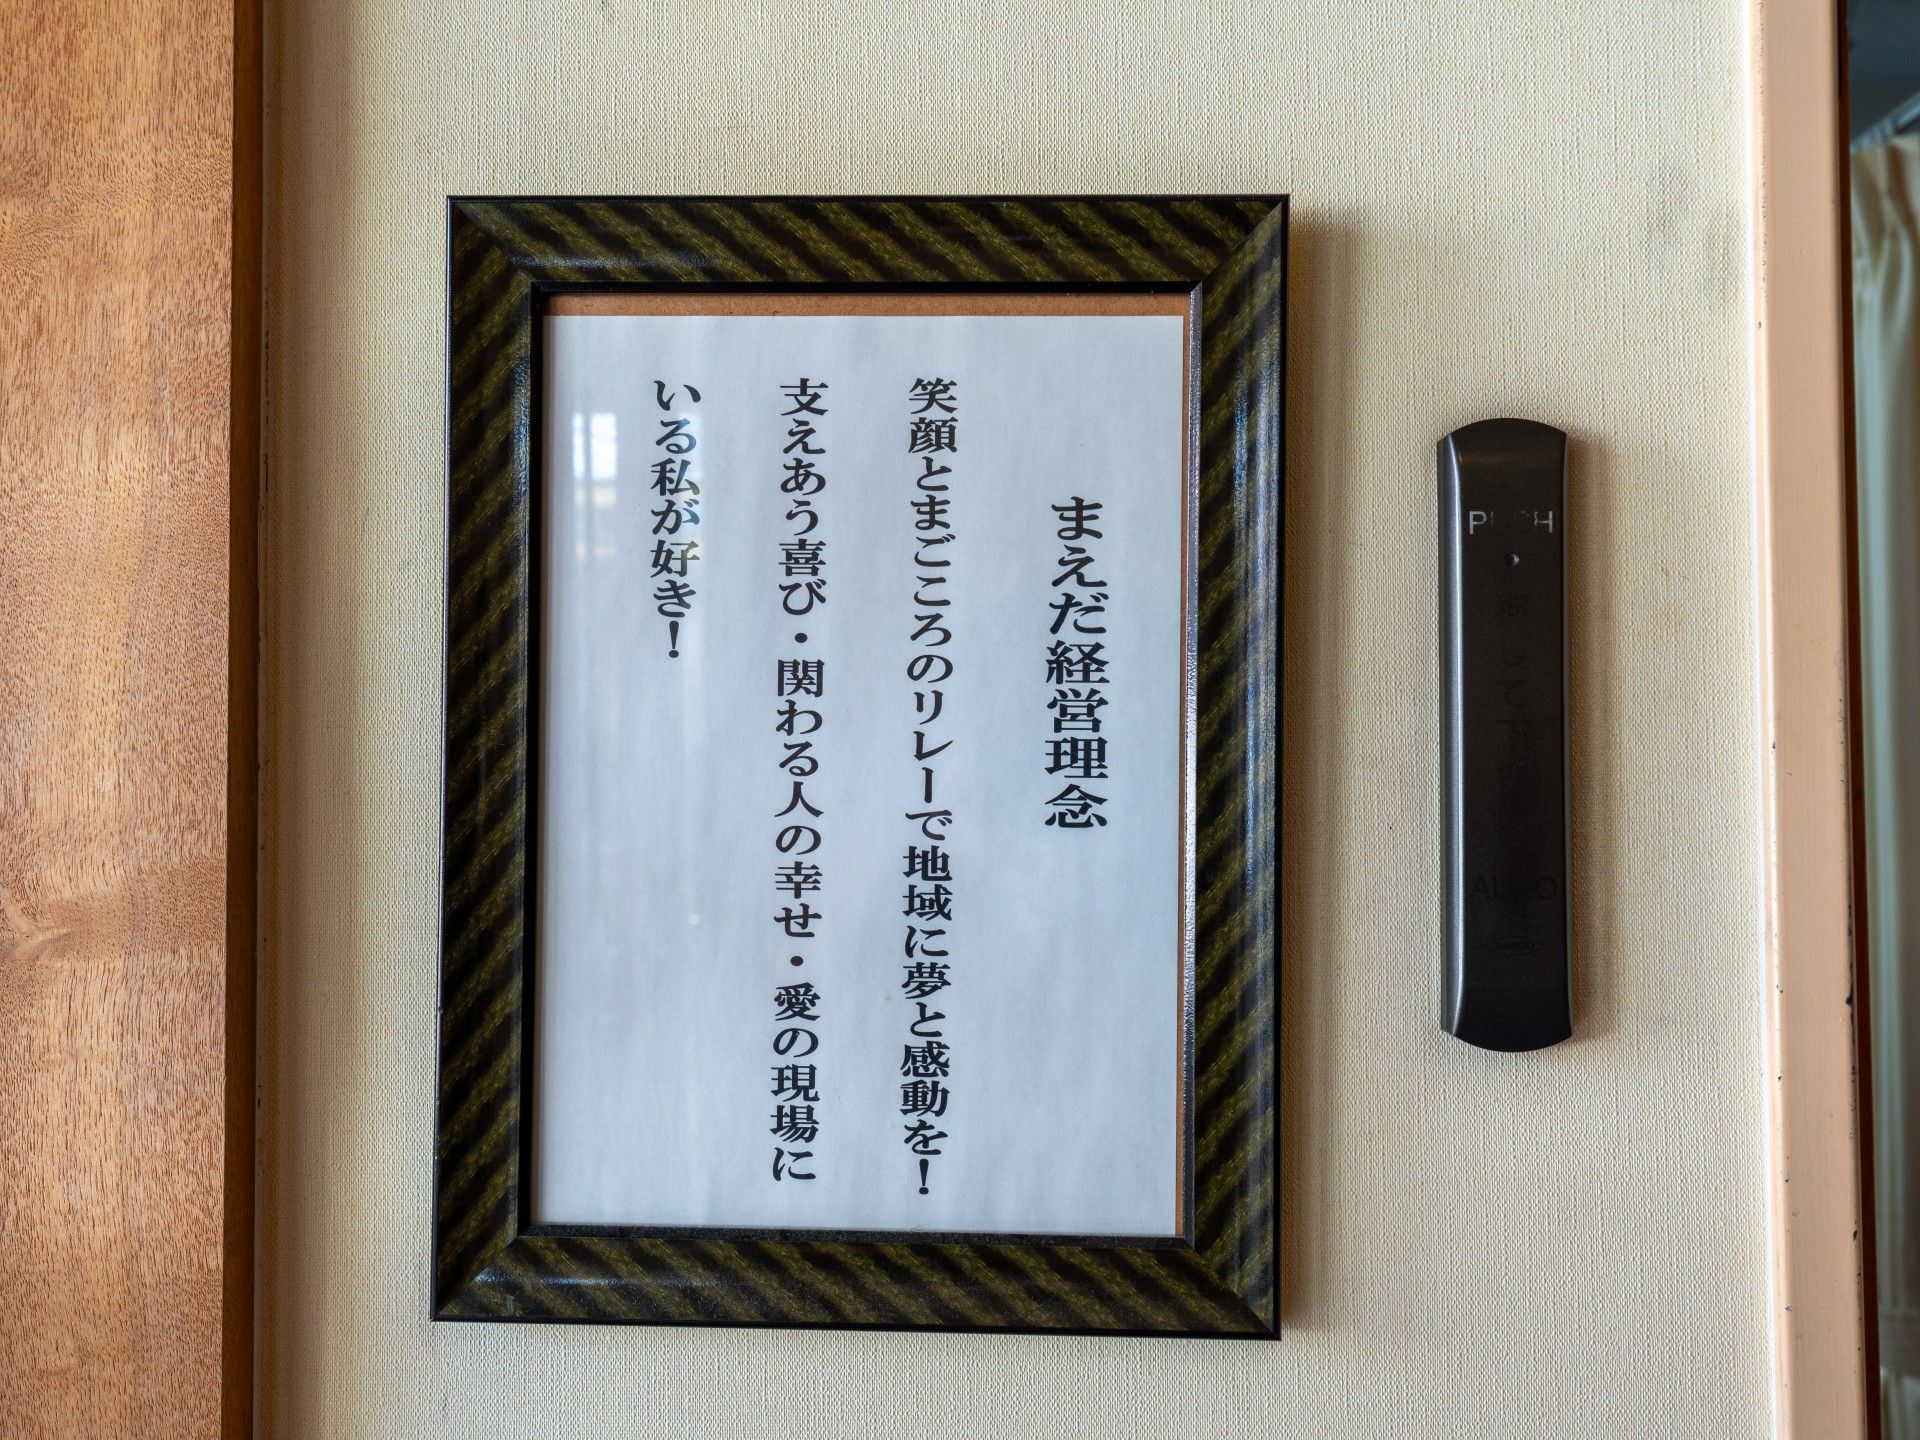 まえだ経営理念
笑顔とまごころのリレーで地域に夢と感動を!
支えあう喜び・関わる人の幸せ・愛の現場に
いる私が好き!
PUSH
押して下さい
AUTO